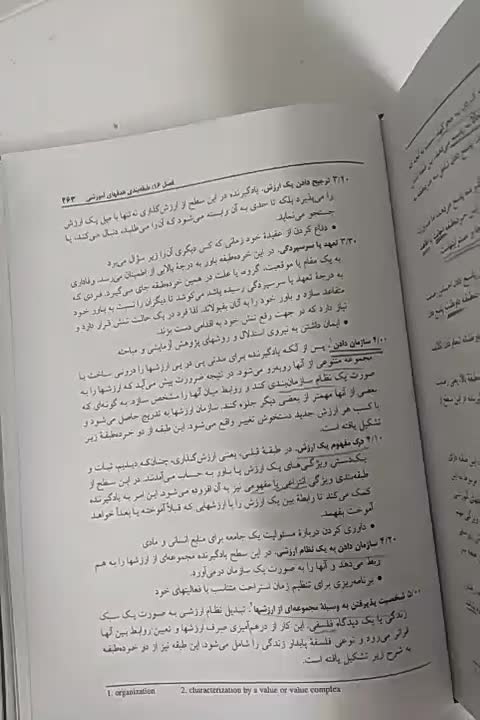 فصل ۱۶: طبقه‌بندی هدفهای آموزشی ۴۶۳
۳/۲۰ ترجیح دادن یک ارزش. یادگیرنده در این سطح از ارزش‌گذاری نه‌تنها با میل یک ارزش
را می‌پذیرد بلکه تا حدی به آن وابسته می‌شود که آن را می‌طلبد، دنبال می‌کند، یا
جستجو می‌نماید.
• دفاع کردن از عقیدهٔ خود زمانی که کس دیگری آن را زیر سؤال می‌برد
۳/۳۰ تعهد یا سرسپردگی. در این خرده‌طبقه باور به درجهٔ بالایی از اطمینان می‌رسد. وفاداری
به یک مقام یا موقعیت، گروه، یا علت در همین خرده‌طبقه جای می‌گیرد. فردی که
به درجهٔ تعهد یا سرسپردگی رسیده باشد می‌کوشد تا دیگران را نسبت به باور خود
متقاعد سازد و باور خود را به آنان بقبولاند. لذا فرد در یک حالت تنش قرار دارد و
نیاز دارد که در جهت رفع تنش خود به اقدامی دست بزند.
• ایمان داشتن به نیروی استدلال و روشهای پژوهش آزمایشی و مباحثه
۴/۰۰ سازمان دادن¹. پس از آنکه یادگیرنده برای مدتی پی در پی ارزشها را درونی ساخت با
مجموعه متنوعی از آنها روبه‌رو می‌شود. در نتیجه ضرورت پیش می‌آید که ارزشها را به
صورت یک نظام سازمان‌بندی کند و روابط میان آنها را مشخص سازد به گونه‌ای که
بعضی از آنها مهمتر از بعضی دیگر جلوه کنند. سازمان ارزشها به تدریج حاصل می‌شود و
با کسب هر ارزش جدید دستخوش تغییر واقع می‌شود. این طبقه از دو خرده‌طبقهٔ زیر
تشکیل یافته است.
۴/۱۰ درک مفهوم یک ارزش. در طبقهٔ قبلی، یعنی ارزش‌گذاری، چنان‌که دیدیم، ثبات و
یکدستی ویژگی‌های یک ارزش یا باور به حساب می‌آمدند. در این سطح از
طبقه‌بندی ویژگی انتزاعی یا مفهومی نیز به آن افزوده می‌شود. این امر به یادگیرنده
کمک می‌کند تا رابطهٔ بین یک ارزش را با ارزشهایی که قبلاً آموخته یا بعداً خواهد
آموخت بفهمد.
• داوری کردن دربارهٔ مسئولیت یک جامعه برای منابع انسانی و مادی
۴/۲۰ سازمان دادن به یک نظام ارزشی. در این سطح یادگیرنده مجموعه‌ای از ارزشها را به هم
ربط می‌دهد و آنها را به صورت یک سازمان درمی‌آورد.
• برنامه‌ریزی برای تنظیم زمان استراحت متناسب با فعالیتهای خود
۵/۰۰ شخصیت پذیرفتن به وسیلهٔ مجموعه‌ای از ارزشها². تبدیل نظام ارزشی به صورت یک سبک
زندگی یا یک دیدگاه فلسفی. این کار از درهم‌آمیزی صرف ارزشها و تعیین روابط بین آنها
فراتر می‌رود و نوعی فلسفهٔ پایدار زندگی را شامل می‌شود. این طبقه نیز از دو خرده‌طبقه
به شرح زیر تشکیل یافته است.
1. organization 2. characterization by a value or value complea